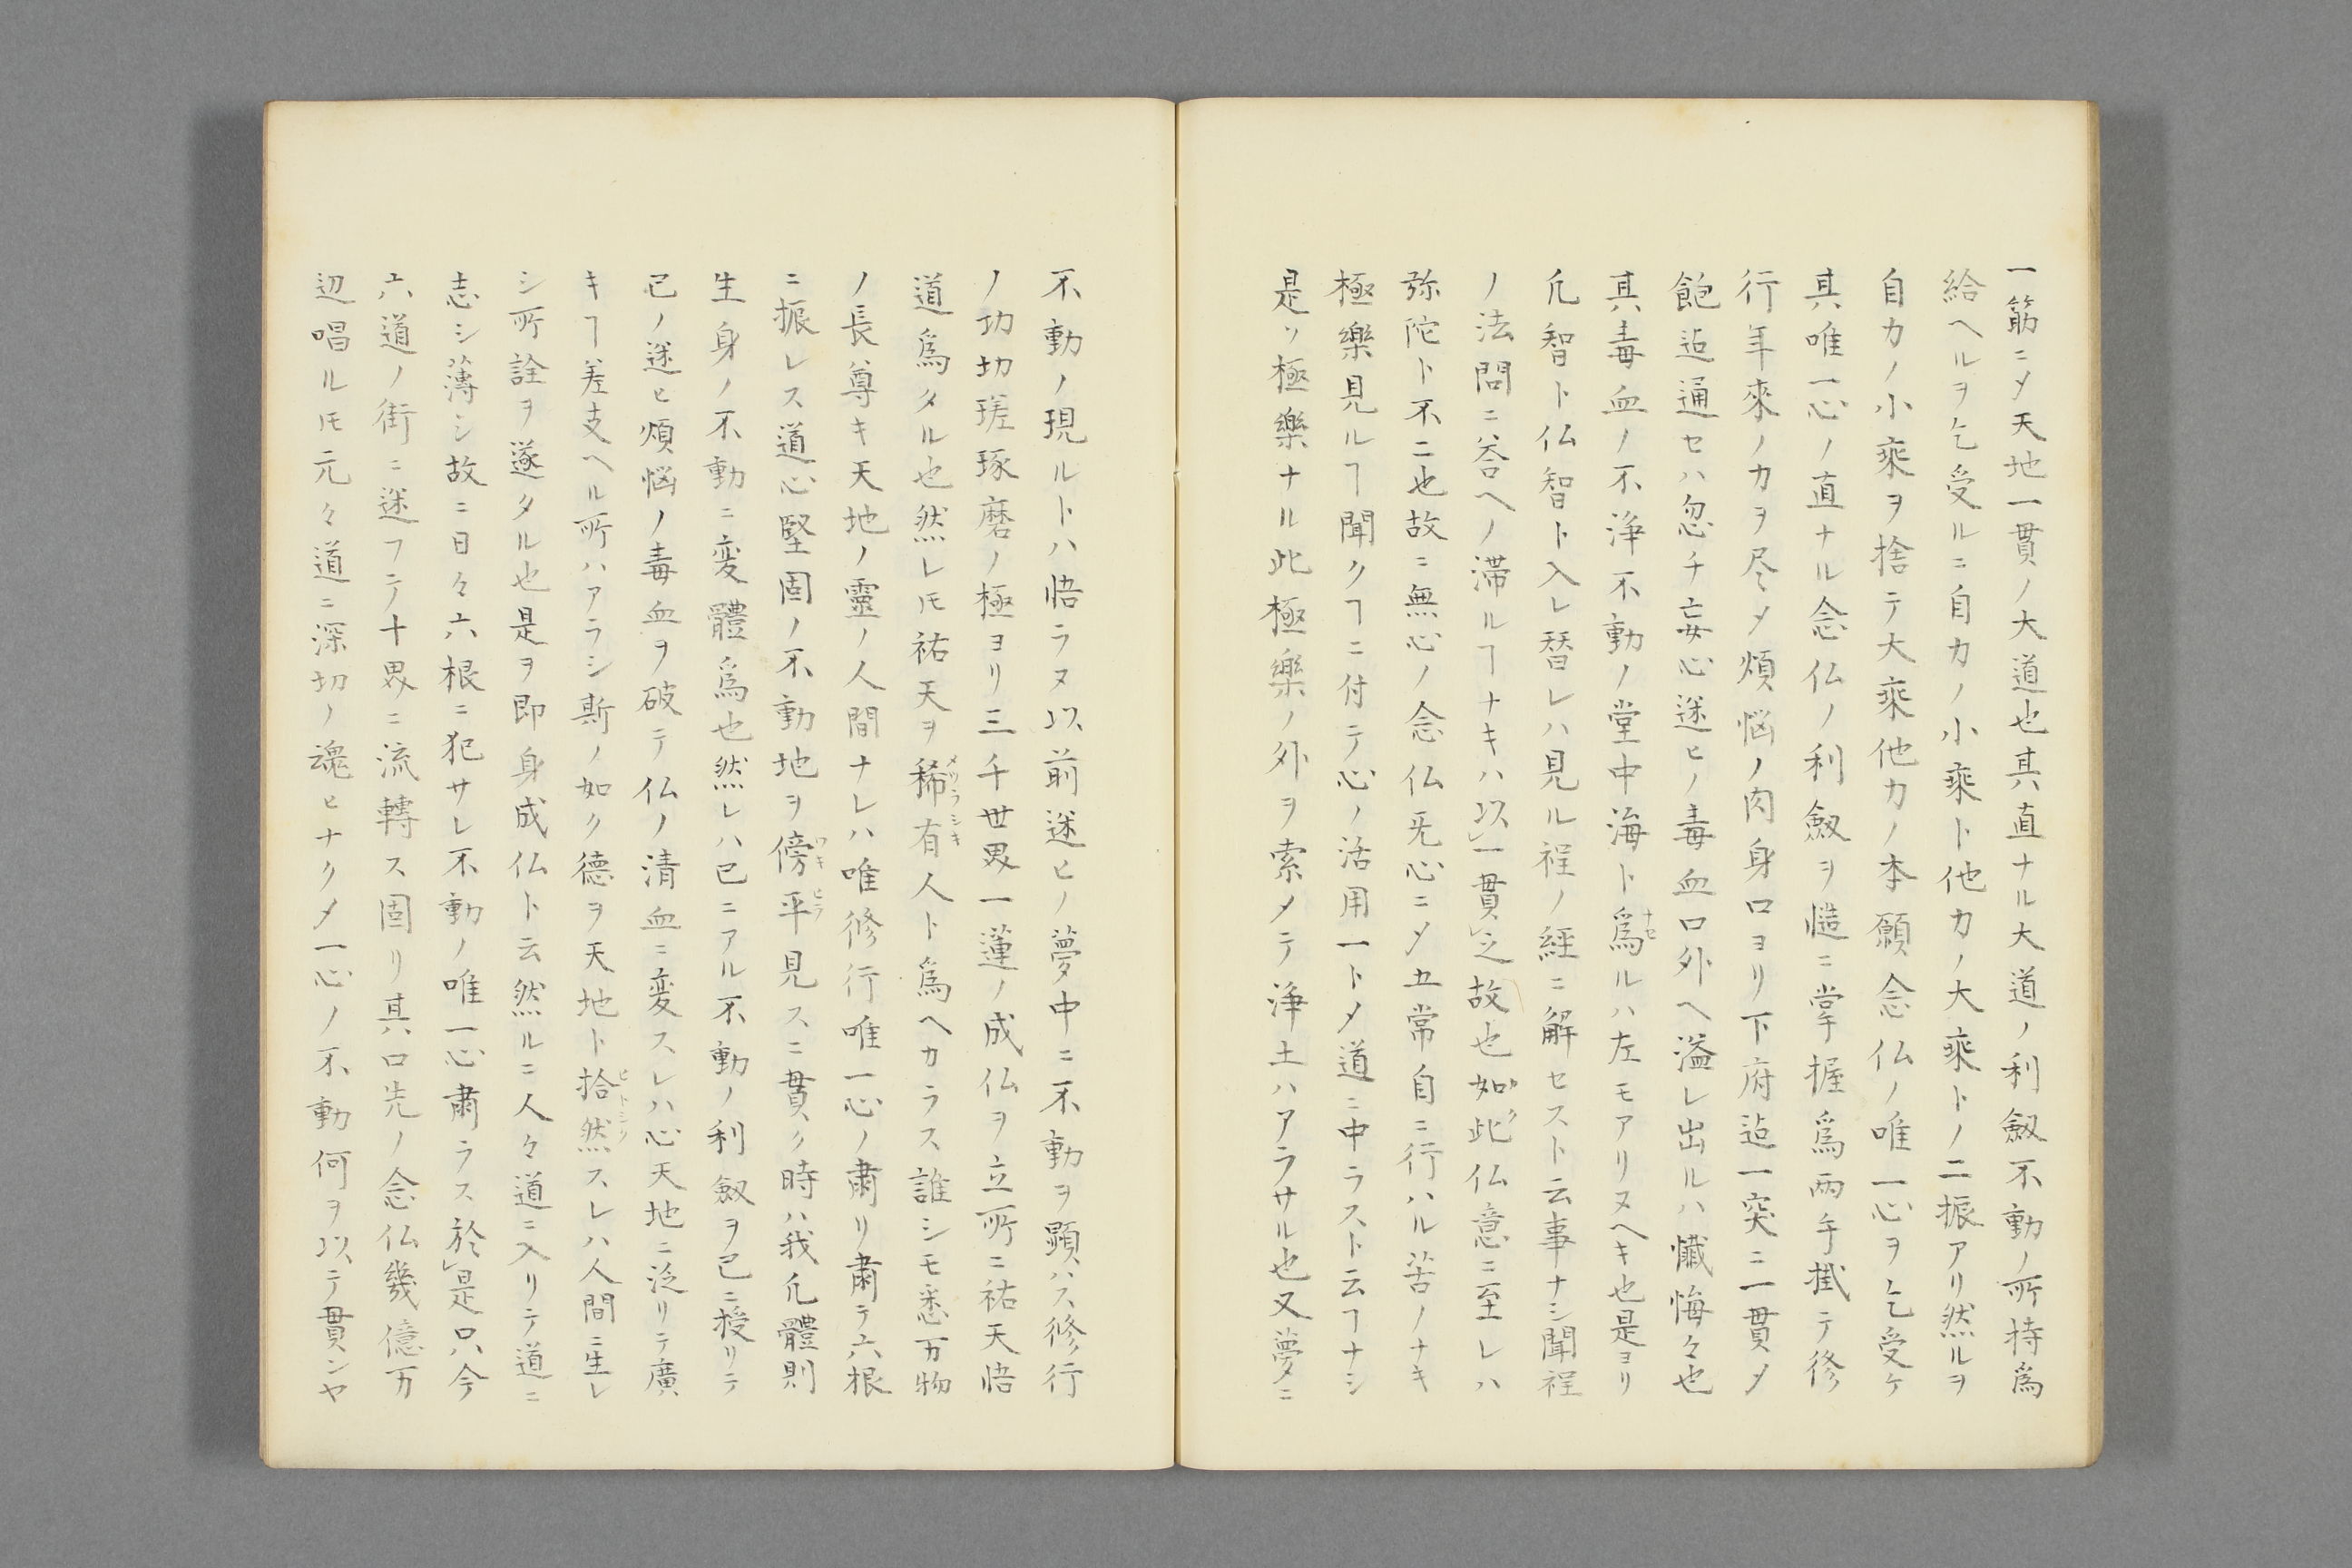 一筋ニメ天地一貫ノ大道也其直ナル大道ノ利劔不動ノ所持爲
給ヘルヲ乞受ルニ自カノ小乘ト他力ノ大乘トノ二振アリ然ルヲ
自力ノ小乘ヲ捨テ大乘他力ノ本願念仏ノ唯一心ヲ乞受ケ
其唯一心ノ直ナル念仏ノ利劔ヲ慥ニ掌握爲両手掛テ修
行年來ノ力ヲ尽メ煩悩ノ肉身口ヨリ下府迠一突ニ一貫メ
飽迠通セハ忽チ妄心迷ヒノ毒血口外ヘ溢レ出ルハ懺悔々也
其毒血ノ不淨不動ノ堂中海ト爲ナセルハ左モアリヌヘキ也是ヨリ
凢智ト仏智ト入レ替レハ見ル程ノ経ニ解セスト云事ナシ聞程
ノ法問ニ答ヘノ滞ルヿナキハ以一貫之故也如ク此仏意ニ至レハ
弥陀ト不二也故ニ無心ノ念仏旡心ニメ五常自ニ行ハル苦ノナキ
極樂見ルヿ聞クヿニ付テ心ノ活用一トメ道ニ中ラスト云ヿナシ
是ソ極樂ナル此極樂ノ外ヲ索メテ浄土ハアラサル也又夢ニ
不動ノ現ルトハ悟ラヌ以前迷ヒノ夢中ニ不動ヲ顕ハス修行
ノ切切瑳琢磨ノ極ヨリ三千世界一蓮ノ成仏ヲ立所ニ祐天悟
道爲タル也然レ𪜈祐天ヲ稀有メツラシキ人ト爲ヘカラス誰シモ悉万物
ノ長尊キ天地ノ靈ノ人間ナレハ唯修行唯一心ノ粛リ粛テ六根
ニ振レス道心堅固ノ不動地ヲ傍ワキ平ヒラ見スニ貫ク時ハ我凢體則
生身ノ不動ニ変體爲也然レハ已ニアル不動ノ利劔ヲ己ニ授リテ
己ノ迷ヒ煩悩ノ毒血ヲ破テ仏ノ清血ニ変スレハ心天地ニ泛リテ廣
キヿ差支ヘル所ハアラシ斯ノ如ク德ヲ天地ト拾然ヒトシクスレハ人間ニ生レ
シ所詮ヲ遂タル也是ヲ即身成仏ト云然ルニ人々道ニ入リテ道ニ
志シ薄シ故ニ日々六根ニ犯サレ不動ノ唯一心粛ラス於是只今
六道ノ街ニ迷フテ十界ニ流轉ス固リ其口先ノ念仏幾億万
辺唱ル𪜈元々道ニ深切ノ魂ヒナクメ一心ノ不動何ヲ以テ貫ンヤ